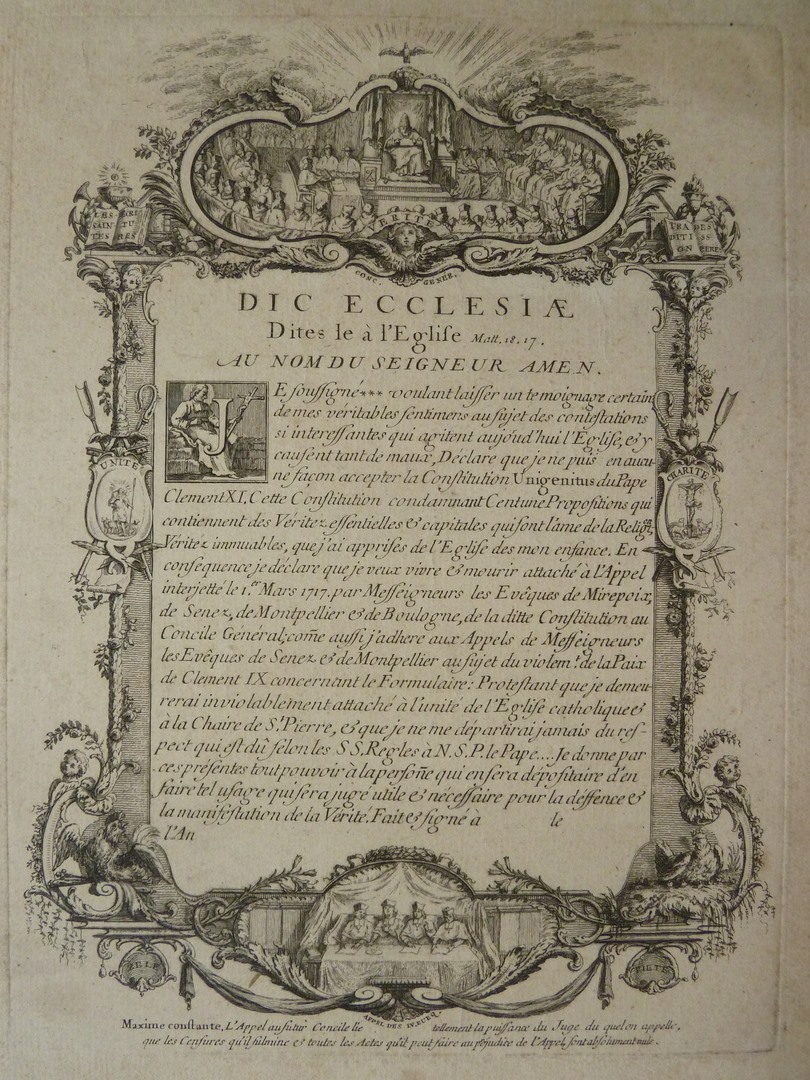 LES ECRI
SAIN TU
TES RES
TRA DES
DITI SS
ON PERE
VERITE
CONC. GENER.
DIC ECCLESIÆ
Dites le à l'Egliſe Matt. 18. 17.
AU NOM DU SEIGNEUR AMEN.
JE ſouſſigné*** voulant laiſſer un temoignage certain
de mes véritables ſentimens au ſujet des conteſtations
si intereſſantes qui agitent aujoud'hui l'Egliſe, & y
cauſent tant de maux, Déclare que je ne puis en aucu-
ne façon accepter la Conſtitution Unigenitus du Pape
Clement XI, Cette Conſtitution condamnant Cent une Propoſitions qui
contiennent des Véritez eſſentielles & capitales qui ſont l'âme de la Religᵒⁿ,
Véritez immuables, que j'ai appriſes de l'Egliſe des mon enfance. En
conſéquence je déclare que je veux vivre & mourir attaché à l'Appel
interjetté le 1.er Mars 1717. par Meſſeigneurs les Evêques de Mirepoix,
de Senez, de Montpellier & de Boulogne, de la ditte Conſtitution au
Concile Général; com̃e auſſi j'adhere aux Appels de Meſſeigneurs
les Evêques de Senez & de Montpellier au ſujet du violem.t de la Paix
de Clement IX concernant le Formulaire: Proteſtant que je demeu-
rerai inviolablement attaché à l'unité de l'Egliſe catholique &
à la Chaire de S.t Pierre, & que je ne me départirai jamais du reſ-
pect qui eſt dû ſelon les SS. Regles à N. S. P. le Pape.... Je donne par
ces préſentes tout pouvoir à la perſoñe qui en ſera dépoſitaire d'en
faire tel uſage qui ſera jugé utile & néceſſaire pour la déffence &
la manifeſtation de la Vérité. Fait & ſigné à le
l'An
UNITÉ
CHARITÉ
ZELE
PIETÉ
APPEL DES IV. EVEQ.
Maxime conſtante, L'Appel au futur Concile lie tellement la puiſſance du Juge du quel on appelle,
que les Cenſures qu'il fulmine & toutes les Actes qu'il peut faire au préjudice de l'Appel, ſont abſolument nuls.